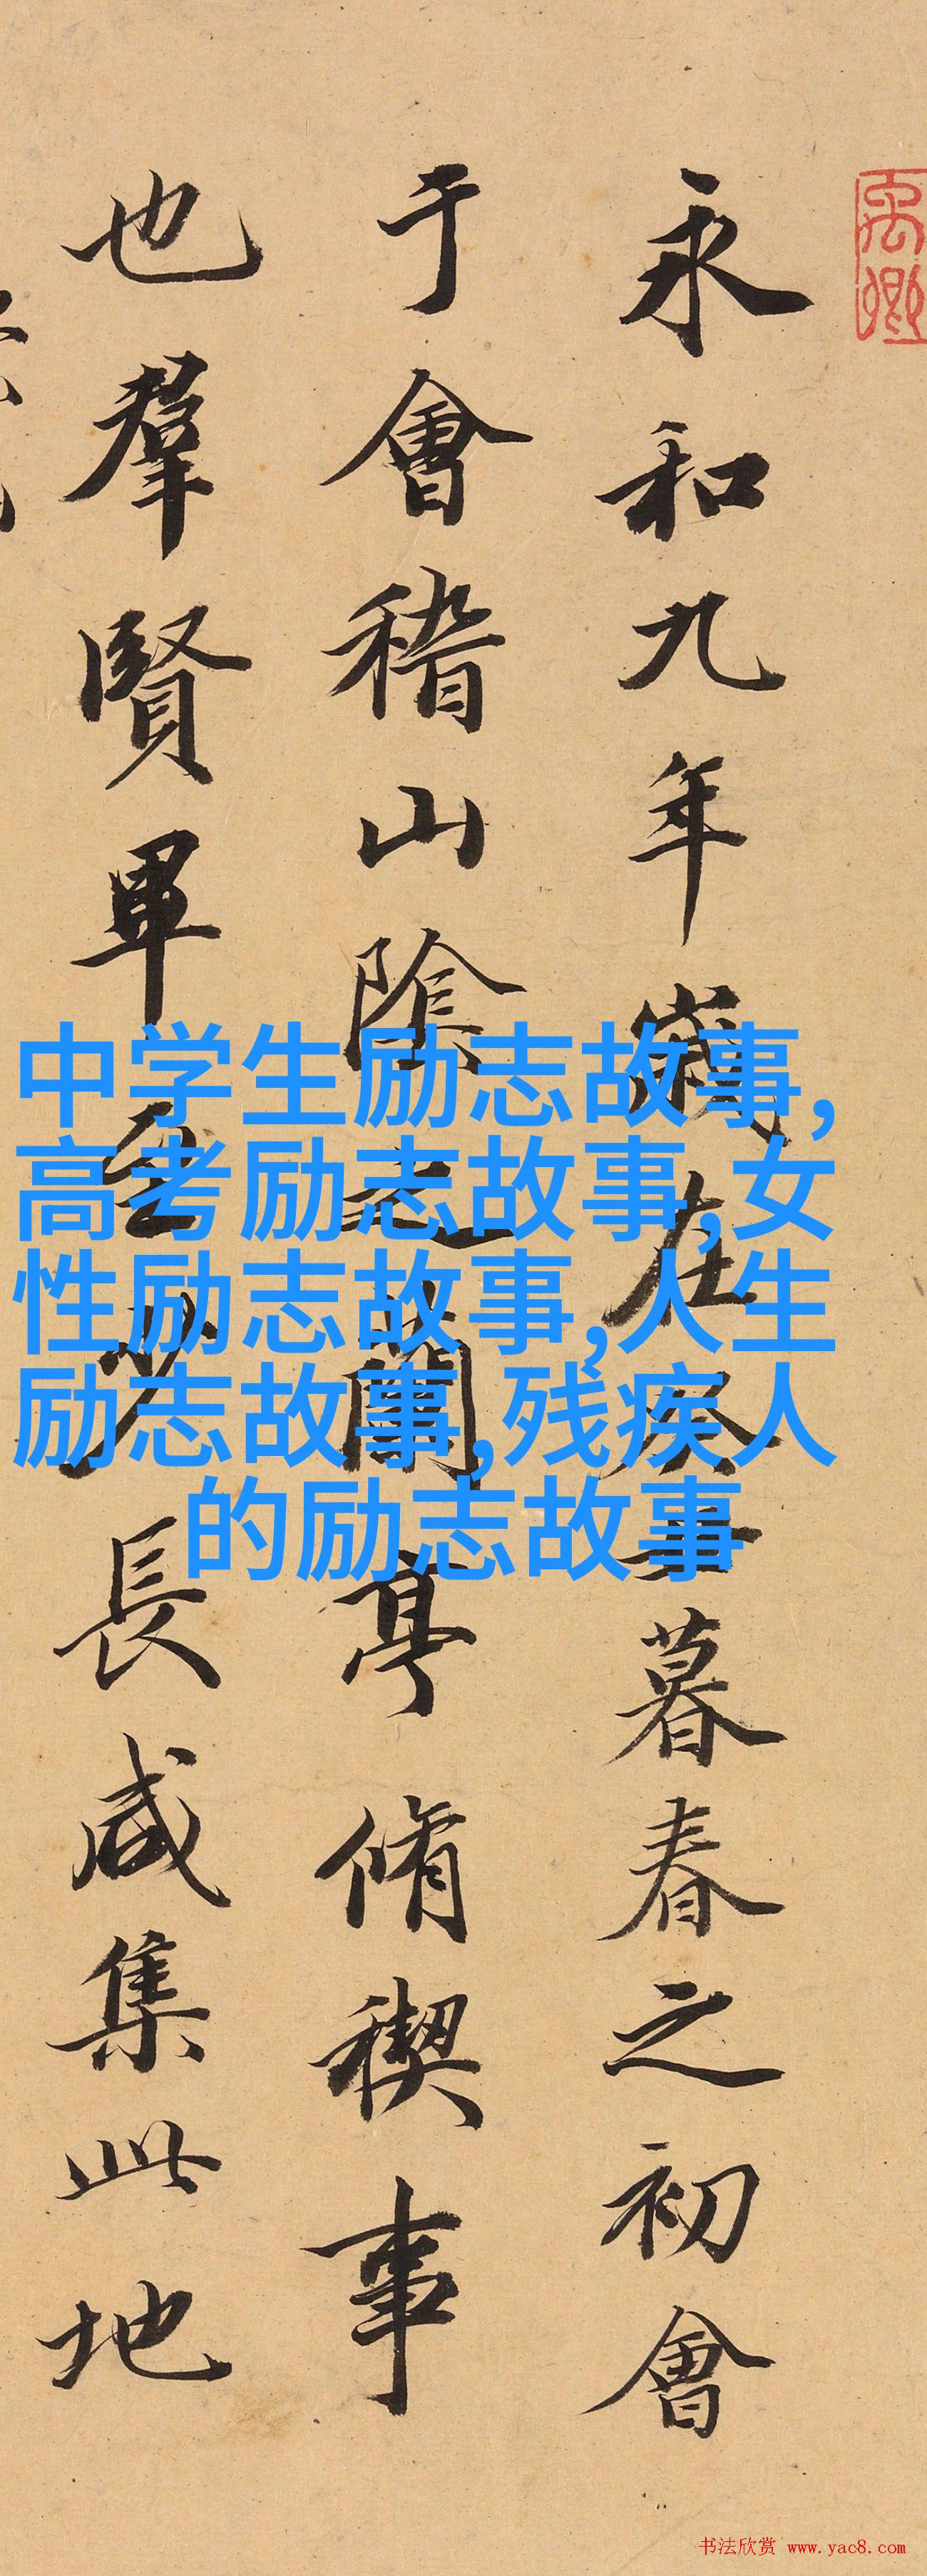 永和九年歲在癸丑暮春之初會
于會稽山陰之蘭亭脩稧事
也羣賢畢至少長咸集此地
中学生励志故事,
高考励志故事,女
性励志故事,人生
励志故事,残疾人
的励志故事
书法欣赏 www.yac8.com